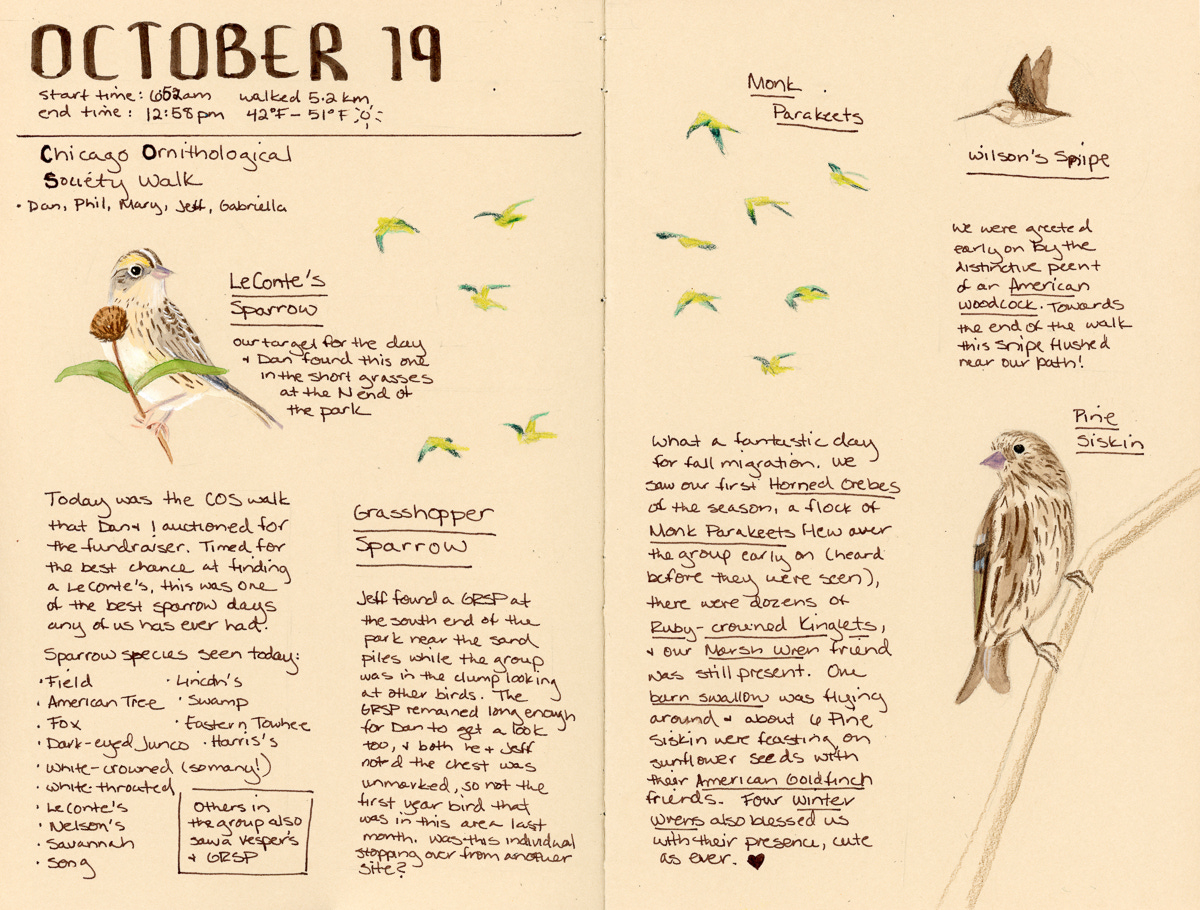 OCTOBER 19
start time: 6:52am walked 5.2 km,
end time: 12:58pm 42°F - 51°F
Chicago Ornithological
Society Walk
• Dan, Phil, Mary, Jeff, Gabriella
LeConte's
Sparrow
our target for the day
+ Dan found this one
in the short grasses
at the N end of
the park
Today was the COS walk
that Dan + I auctioned for
the fundraiser. Timed for
the best chance at finding
a LeConte's, this was one
of the best sparrow days
any of us has ever had.
Sparrow species seen today:
• Field
• American Tree
• Fox
• Dark-eyed Junco
• White-crowned (so many!)
• White-throated
• LeConte's
• Nelson's
• Savannah
• Song
• Lincoln's
• Swamp
• Eastern Towhee
• Harris's
Others in
the group also
saw a Vesper's
+ GRSP
Grasshopper
Sparrow
Jeff found a GRSP at
the south end of the
park near the sand
piles while the group
was in the clump looking
at other birds. The
GRSP remained long enough
for Dan to get a look
too, + both he + Jeff
noted the chest was
unmarked, so not the
first year bird that
was in this area last
month. Was this individual
stopping over from another
site?
Monk
Parakeets
What a fantastic day
for fall migration. We
saw our first Horned Grebes
of the season, a flock of
Monk Parakeets flew over
the group early on (heard
before they were seen),
there were dozens of
Ruby-crowned Kinglets,
+ our Marsh Wren friend
was still present. One
barn swallow was flying
around + about 6 Pine
Siskin were feasting on
sunflower seeds with
their American Goldfinch
friends. Four Winter
Wrens also blessed us
with their presence, cute
as ever. ♥
Wilson's Snipe
We were greeted
early on by the
distinctive peent
of an American
Woodcock. Towards
the end of the walk
this snipe flushed
near our path!
Pine
Siskin